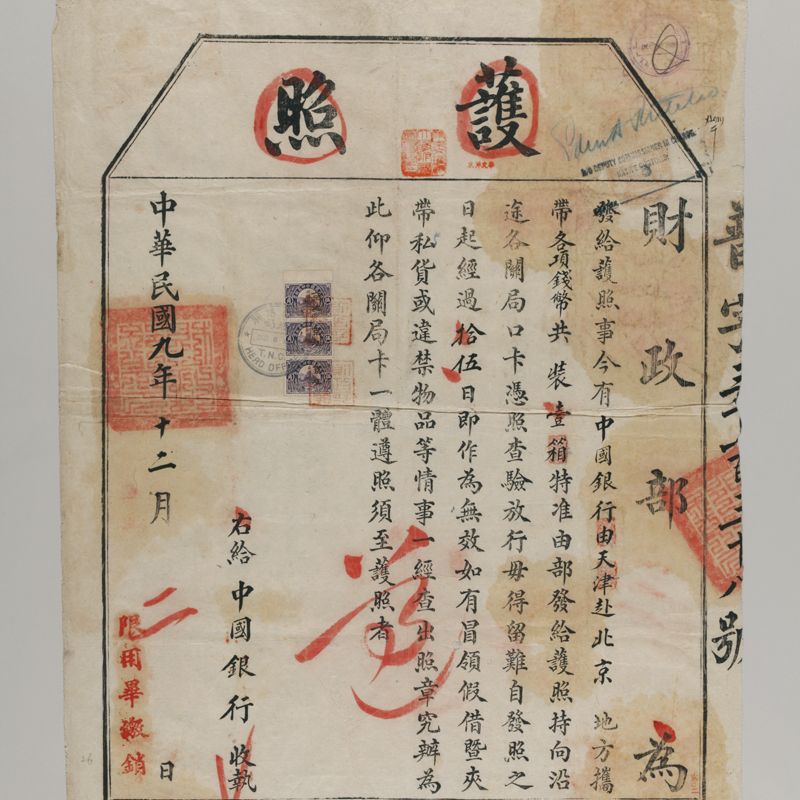 護照
財政部為
發給護照事今有中國銀行由天津赴北京地方攜
帶各項錢幣共裝壹箱特准由部發給護照持向沿
途各關局口卡憑照查驗放行毋得留難自發照之
日起經過拾伍日即作為無效如有冒領假借暨夾
帶私貨或違禁物品等情事一經查出照章究辦為
此仰各關局卡一體遵照須至護照者
遵
右給中國銀行收執
中華民國九年十二月二日
限用畢繳銷
號
DEPUTY COMMISSIONER
HEAD OFF